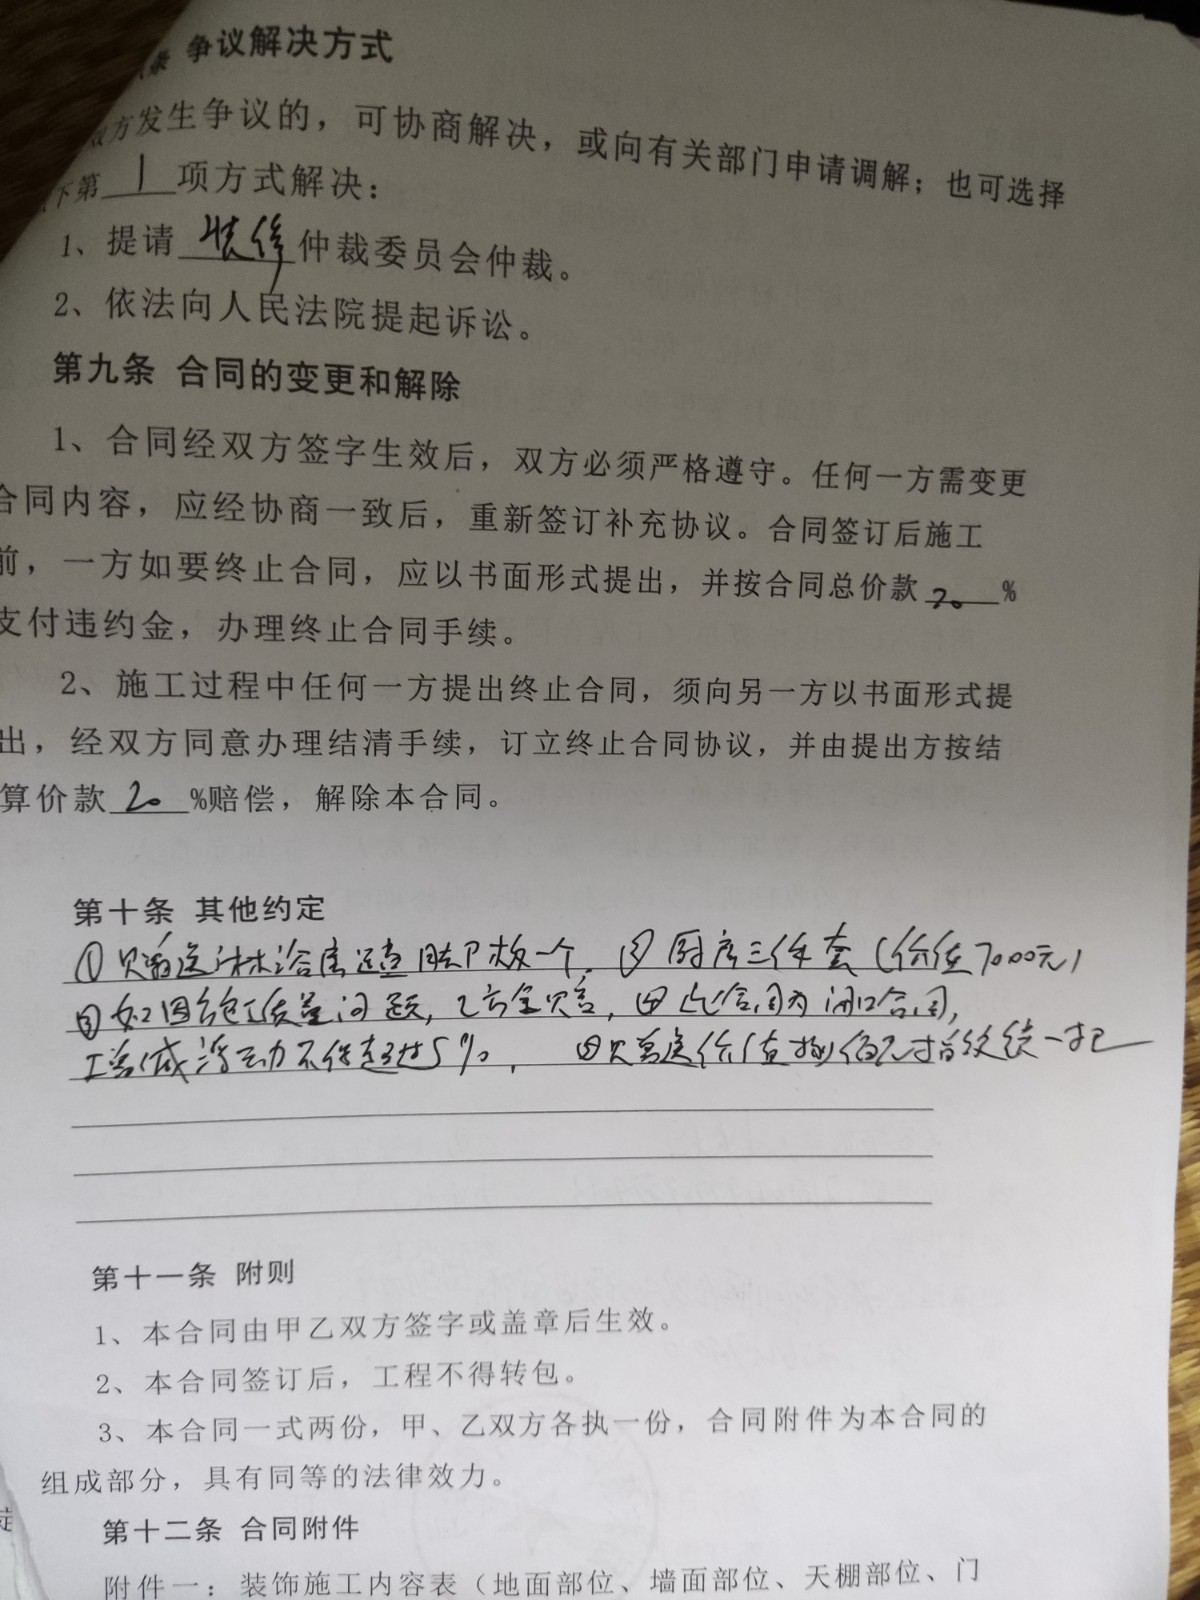 条 争议解决方式
双方发生争议的，可协商解决，或向有关部门申请调解；也可选择
下第 1 项方式解决：
1、提请 装修 仲裁委员会仲裁。
2、依法向人民法院提起诉讼。
第九条 合同的变更和解除
1、合同经双方签字生效后，双方必须严格遵守。任何一方需变更
合同内容，应经协商一致后，重新签订补充协议。合同签订后施工
前，一方如要终止合同，应以书面形式提出，并按合同总价款 20 %
支付违约金，办理终止合同手续。
2、施工过程中任何一方提出终止合同，须向另一方以书面形式提
出，经双方同意办理结清手续，订立终止合同协议，并由提出方按结
算价款 20 %赔偿，解除本合同。
第十条 其他约定
①赠送淋浴房 一个，② 厨房三件套（价值7000元）
③如因 质量问题，乙方全责，④此合同为闭口合同，
增减浮动不能超过5%， ④赠送价值
第十一条 附则
1、本合同由甲乙双方签字或盖章后生效。
2、本合同签订后，工程不得转包。
3、本合同一式两份，甲、乙双方各执一份，合同附件为本合同的
组成部分，具有同等的法律效力。
第十二条 合同附件
附件一：装饰施工内容表（地面部位、墙面部位、天棚部位、门